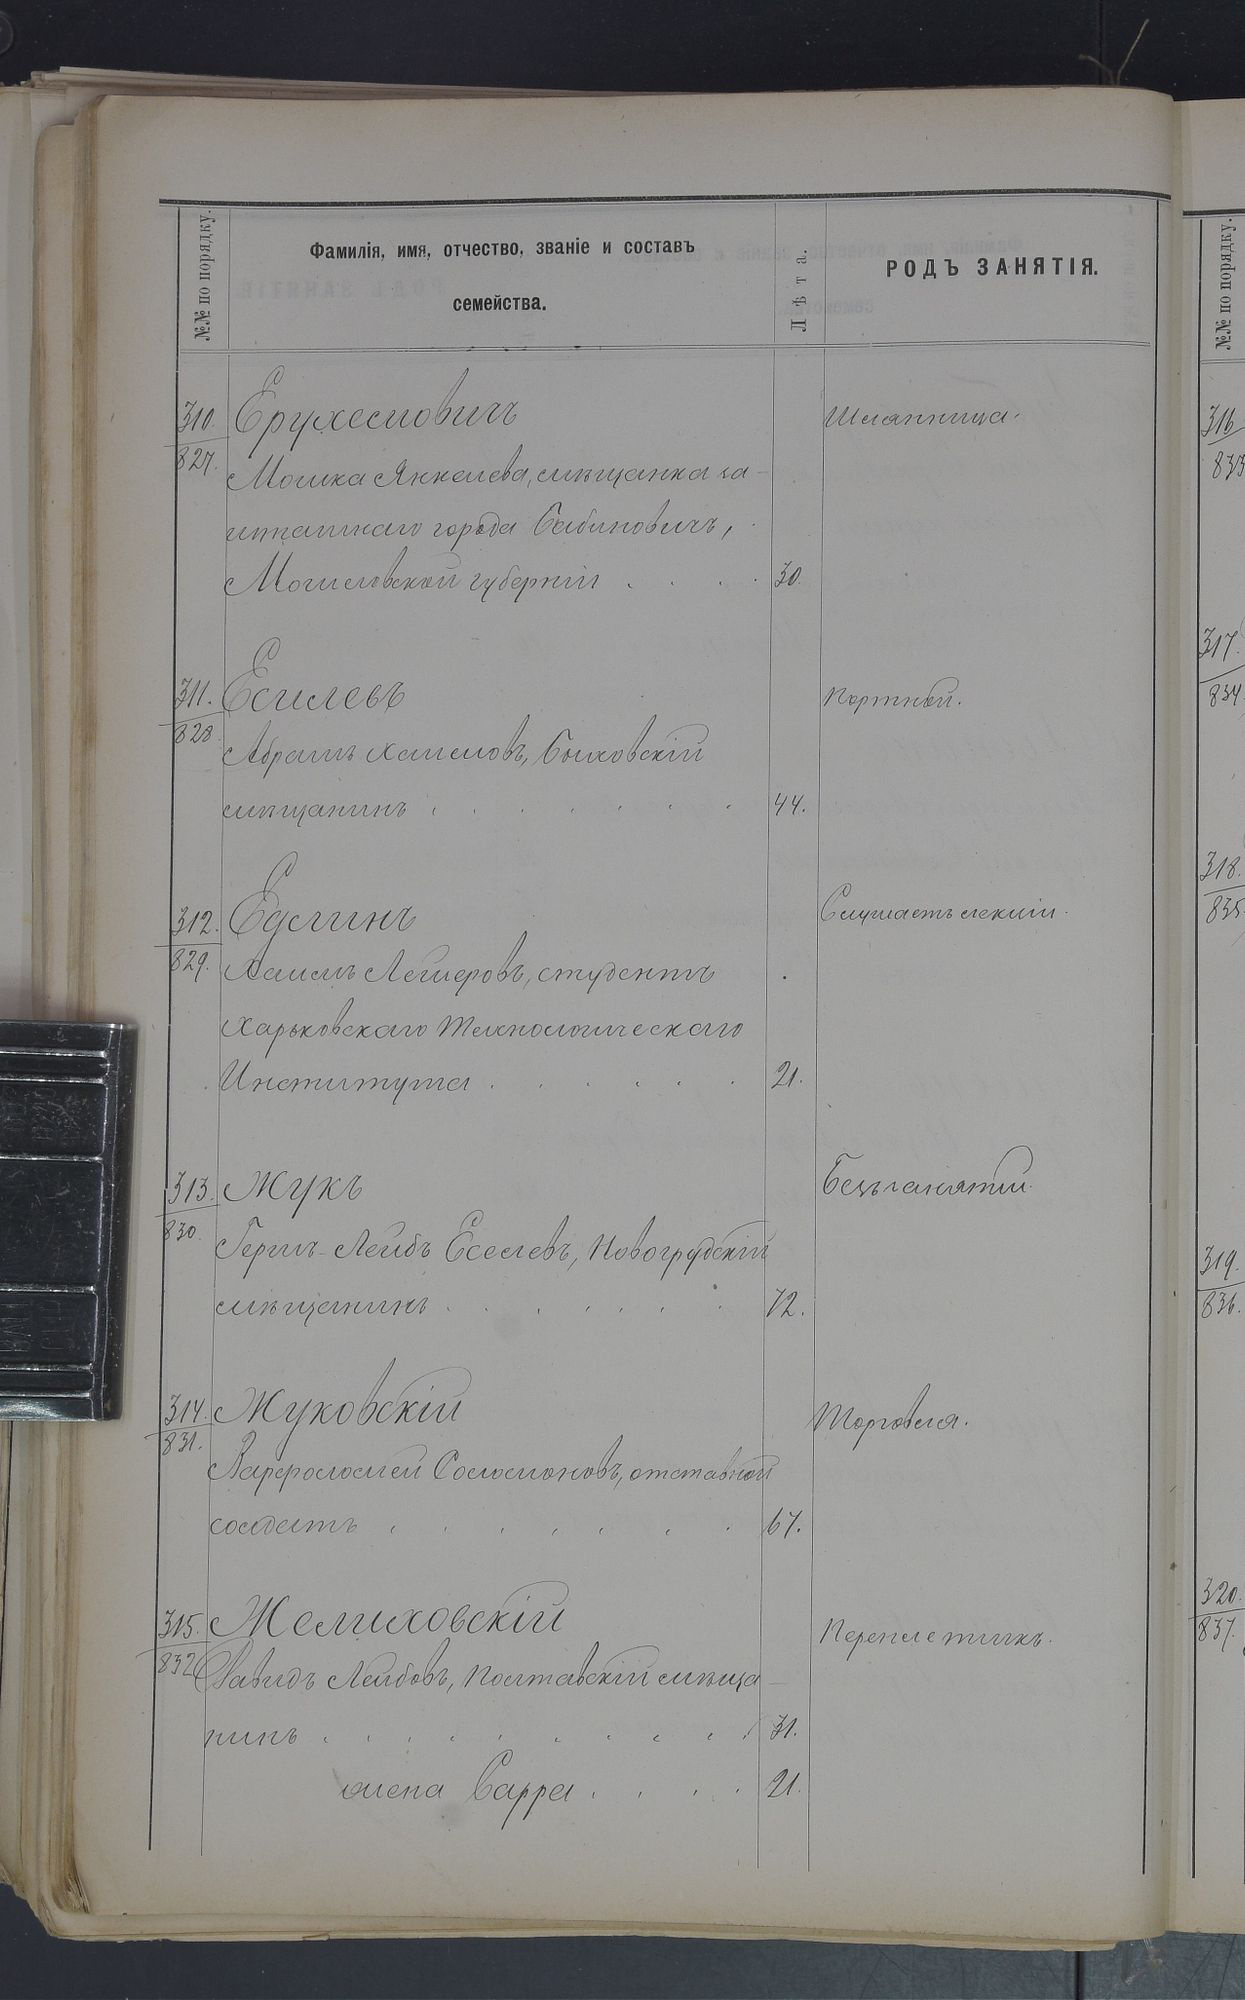 №№ по порядку.
Фамилія, имя, отчество, званіе и составъ
семейства.
Лѣта.
РОДЪ ЗАНЯТІЯ.
310.
827.
Ерухемовичъ
Шляпница.
Мошка Янкелева, мѣщанка за-
штатнаго города Бабиновичъ,
Могилевской губерніи . . . . 30.
311.
828.
Есилевъ
Портной.
Абрамъ Хаимовъ, Быховскій
мѣщанинъ . . . . . . 44.
312.
829.
Едлинъ
Слушаетъ лекціи.
Хаимъ Лейзеровъ, студентъ
Харьковскаго Технологическаго
Института . . . . . . 21.
313.
830.
Жукъ
Безъ занятій.
Гершъ-Лейбъ Еселевъ, Новогрудскій
мѣщанинъ . . . . . . 72.
314.
831.
Жуковскій
Торговля.
Варфоломей Соломоновъ, отставной
солдатъ . . . . . . . 67.
315.
832.
Желиховскій
Переплетчикъ.
Давидъ Лейбовъ, Полтавскій мѣща-
нинъ . . . . . . . . . 31.
жена Сарра . . . . 21.
№№ по порядку.
316
833
317.
834.
318.
835.
319.
836.
320.
837.